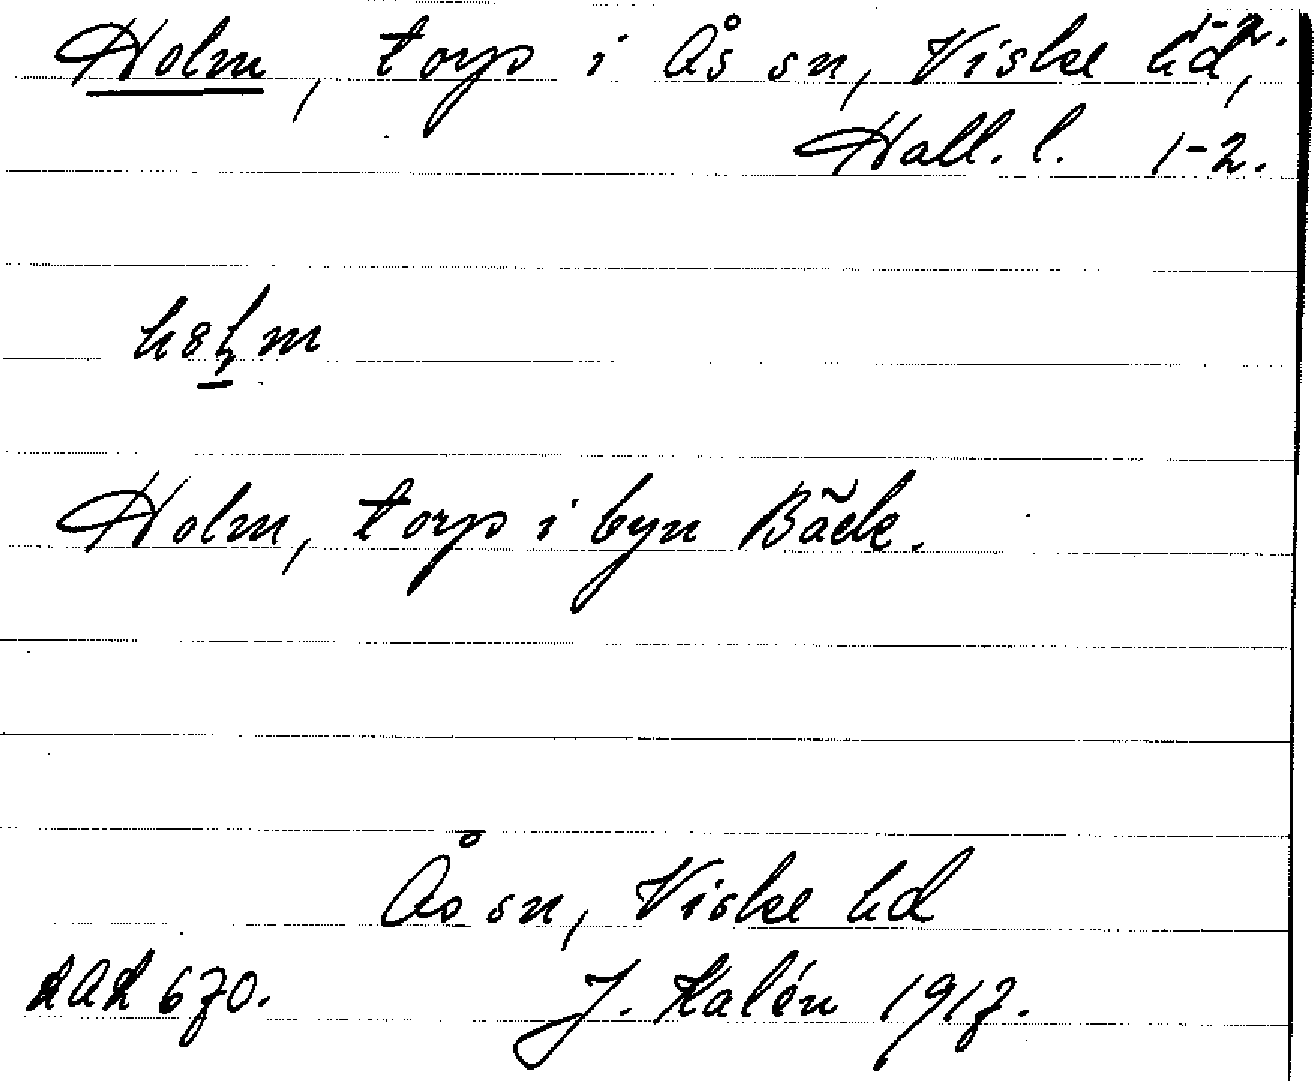 Holm, torp i Ås sn, Viske hd, 1-2.
Hall. l. 1-2.
Holm, torp i byn Bäck.
Ås sn, Viske hd
670. J. Kalén 1917.